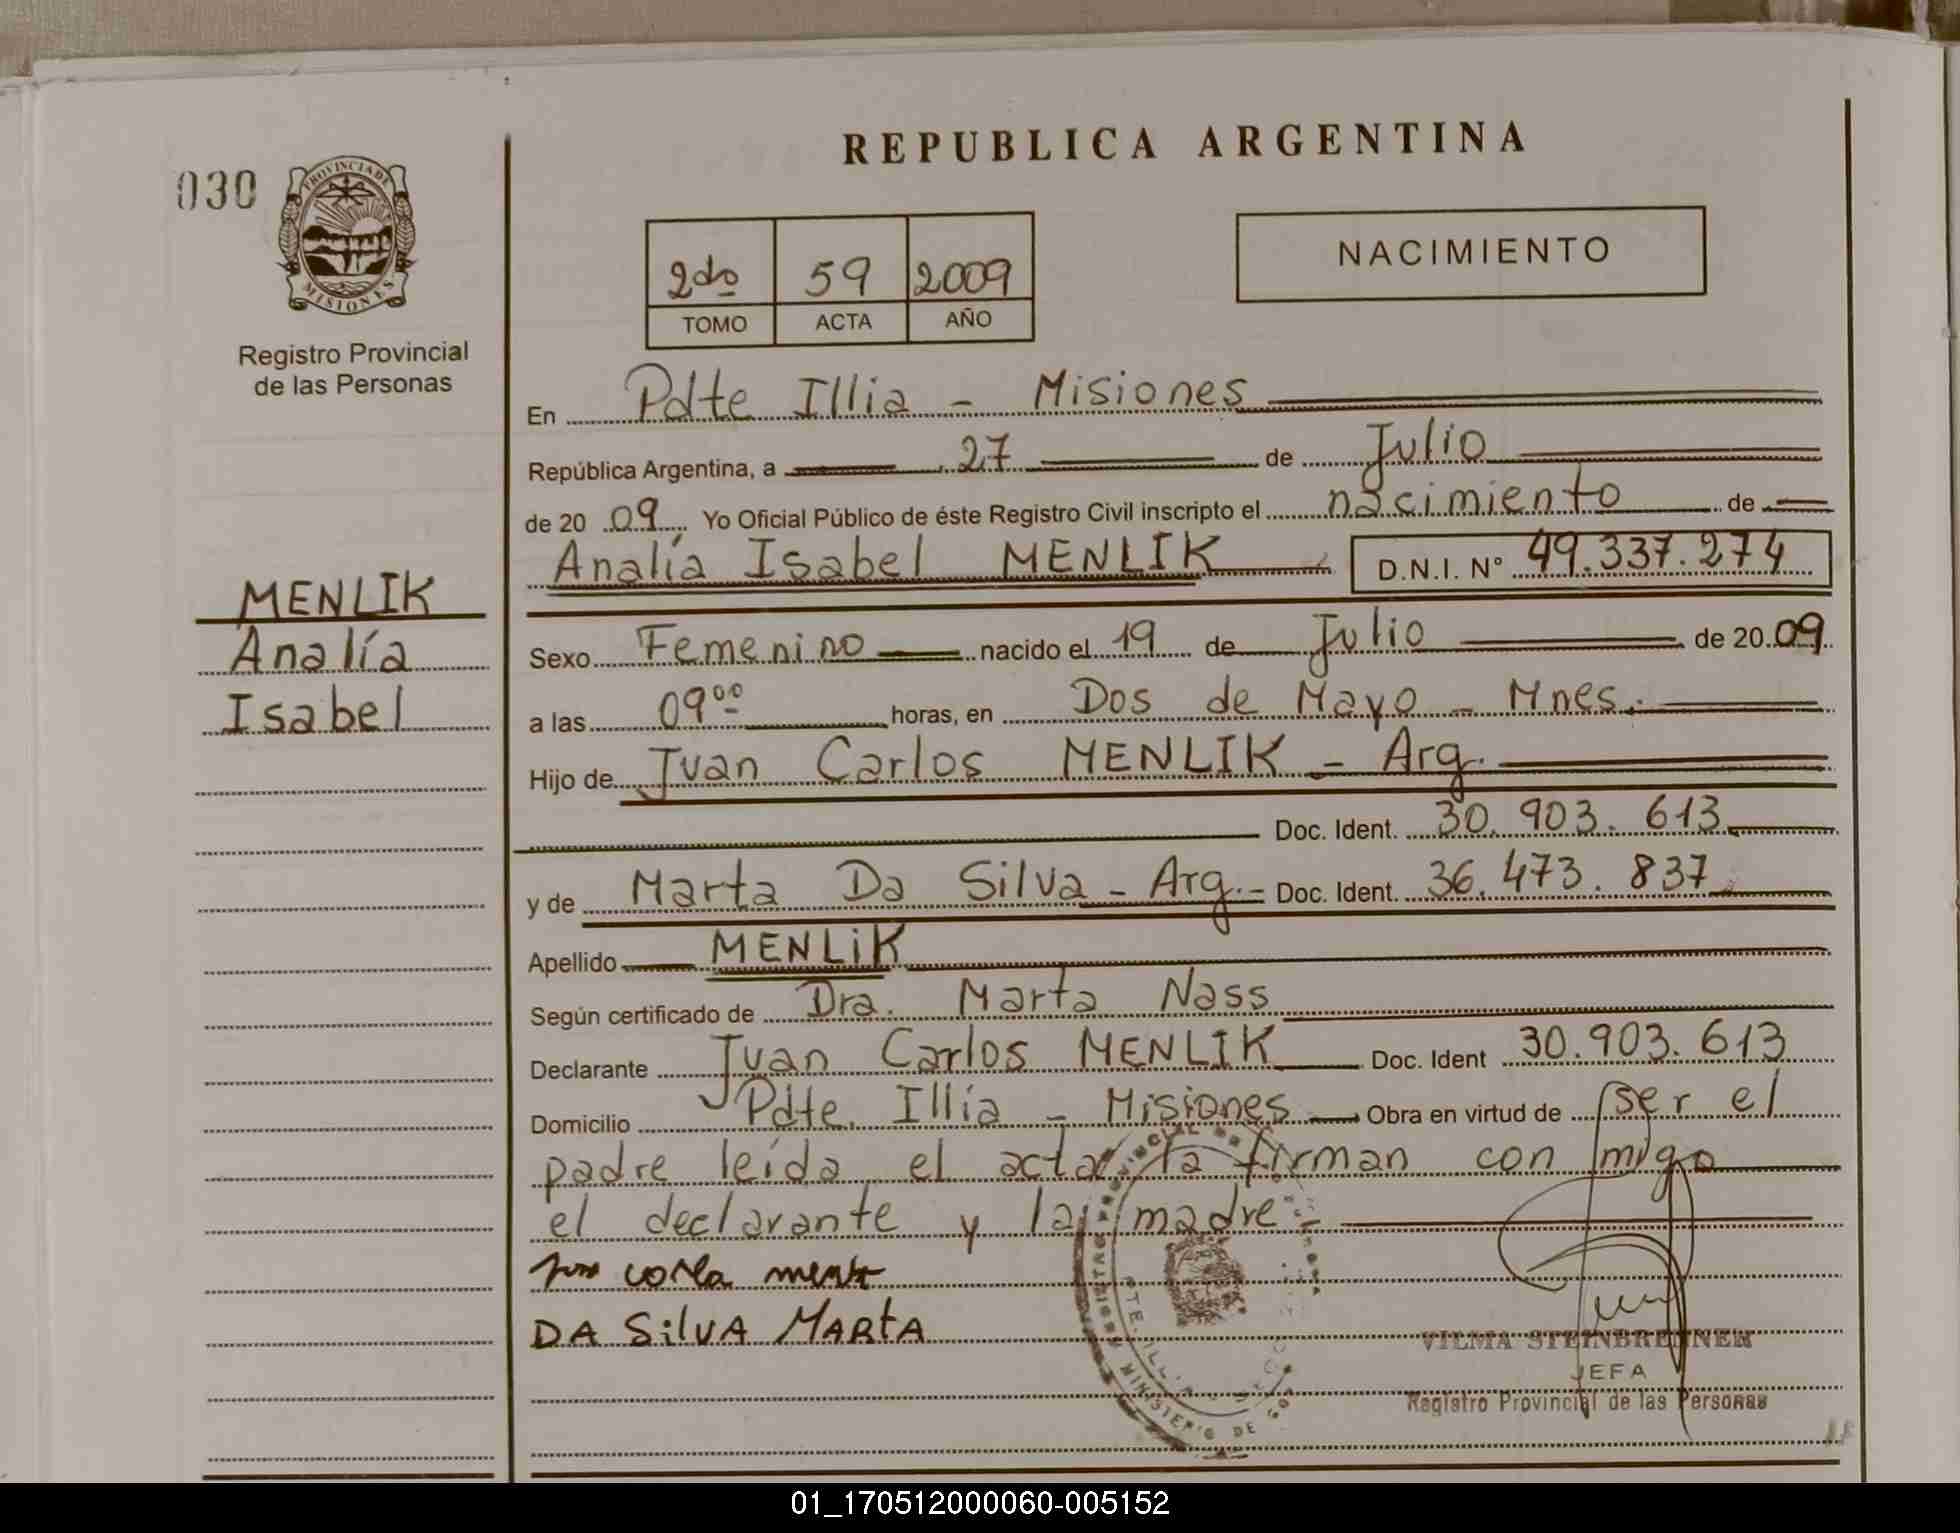 REPUBLICA ARGENTINA
030
PROVINCIA DE
MISIONES
Registro Provincial
de las Personas
2do 59 2009
TOMO ACTA AÑO
NACIMIENTO
En Pdte Illia - Misiones
República Argentina, a 27 de Julio
de 20 09 Yo Oficial Público de éste Registro Civil inscripto el nacimiento de
Analía Isabel MENLIK D.N.I. N° 49.337.274
MENLIK
Analía
Isabel
Sexo Femenino nacido el 19 de Julio de 20 09
a las 09 00 horas, en Dos de Mayo - Mnes.
Hijo de Juan Carlos MENLIK - Arg.
Doc. Ident. 30.903.613
y de Marta Da Silva - Arg. - Doc. Ident. 36.473.837
Apellido MENLIK
Según certificado de Dra. Marta Nass
Declarante Juan Carlos MENLIK Doc. Ident 30.903.613
Domicilio Pdte. Illia - Misiones Obra en virtud de ser el
padre leída el acta la firman con migo
el declarante y la madre -
DA SilVA MARtA
VILMA STEINBRENNER
JEFA
Registro Provincial de las Personas
01_170512000060-005152